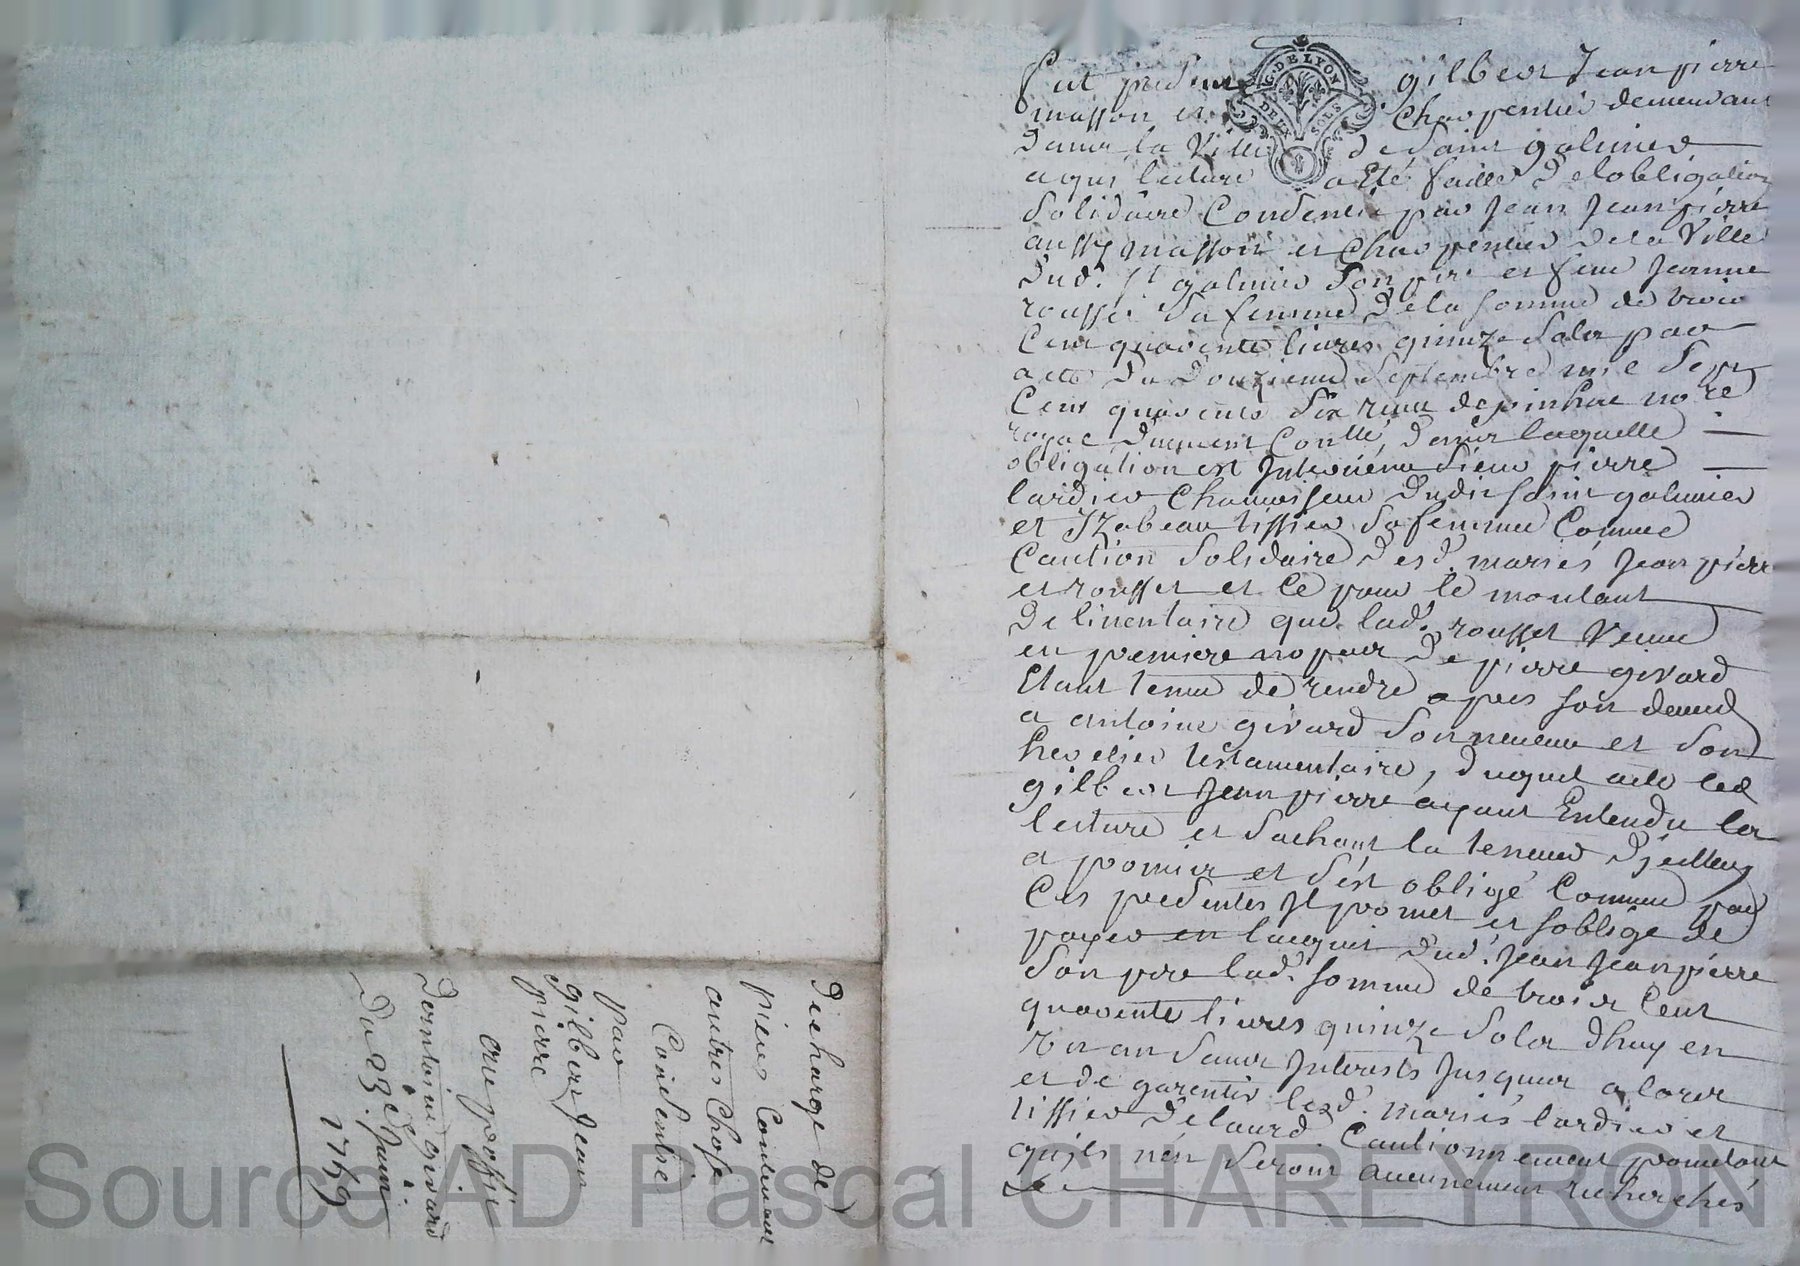 G. DE LYON
DEUX SOLS
Fut present gilbert Jeanpierre
masson et Charpentier demeurant
Dans la Ville de Saint galmier
aqui lecture a Eté faitte De lobligation
Solidaire Consentie par Jean Jeanpierre
aussy masson et Charpentier De la Ville
Dud. St galmier Son pere et feue Jeanne
rousset Sa femme De la Somme de trois
Cent quarente livres quinze Sols par
acte Du Douzieme Septembre mil Sept
Cent quarente Six recue depinhac nore
royal Duement Conllé, Dans laquelle
obligation est Intervenu Sieur pierre
lardier Chamoiseur Dudit Saint galmier
et Izabeau tissier Sa femme Comme
Caution Solidaire Desd. mariés Jeanpierre
et rousset et Ce pour le montant
De linventaire que lad. rousset Veuve
en premiere nopces De pierre girard
Etant tenue de rendre apres Son deced
a antoine girard Son neveu et Son
heretier testamentaire, Duquel acte led
gilbert Jeanpierre ayant Entendu la
lecture et Sachant la teneur Dicelluy
a promis et Sest obligé Comme par
Ces presentes Il promet et Soblige de
payer en lacquit Dud. Jean Jeanpierre
Son pere lad. Somme de trois Cent
quarente livres quinze Sols Dhuy en
Un an Sans Interests Jusques alors
et de garentir lesd. mariés lardier et
tissier De leurd. Cautionnement pourtant
quils nen Seront aucunement recherchés
Decharge de
pieces Contenant
autres Chose
Consentie
par
gilbert Jean
pierre
au proffit
Dantoine girard
Du 23e Juin
1769
Source AD Pascal CHAREYRON